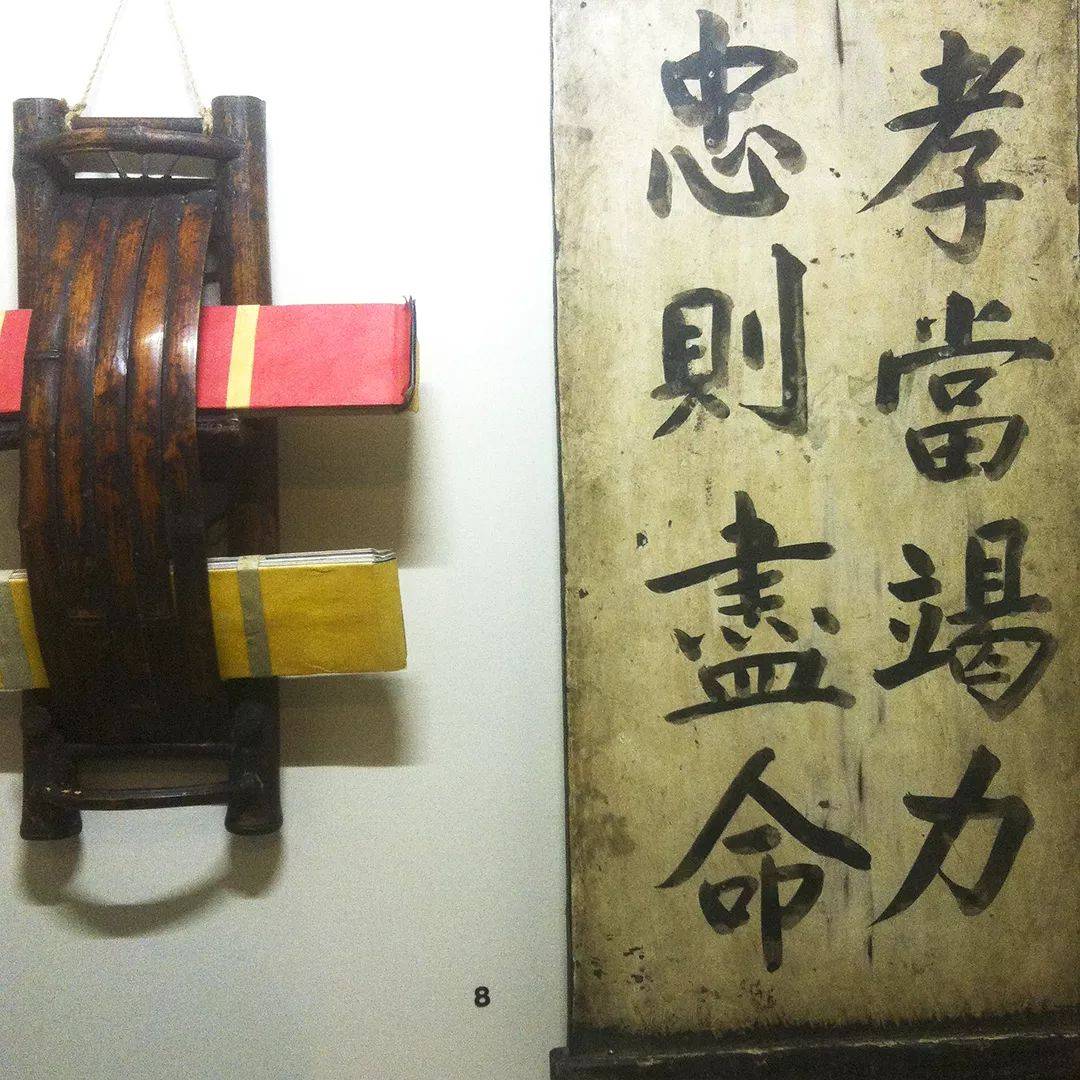 孝當竭力
忠則盡命
8